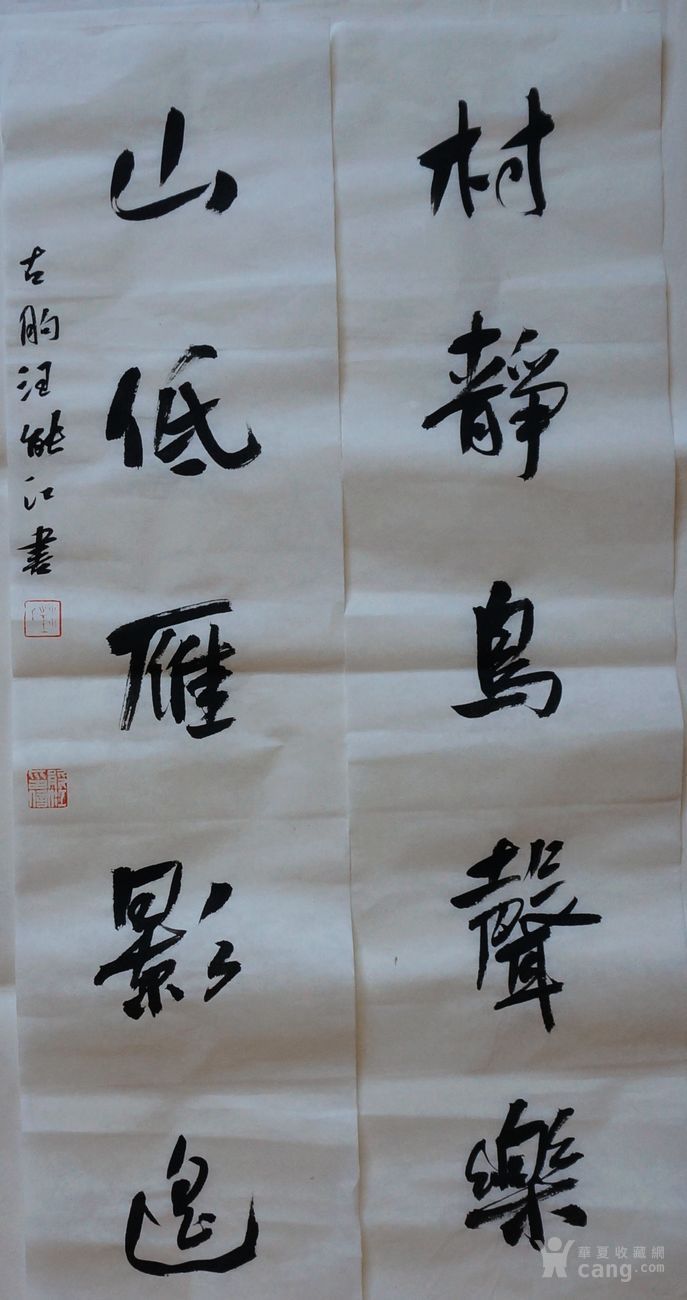 村靜鳥聲樂
山低雁影遥
古朐汪能江書
華夏收藏網
cang.com